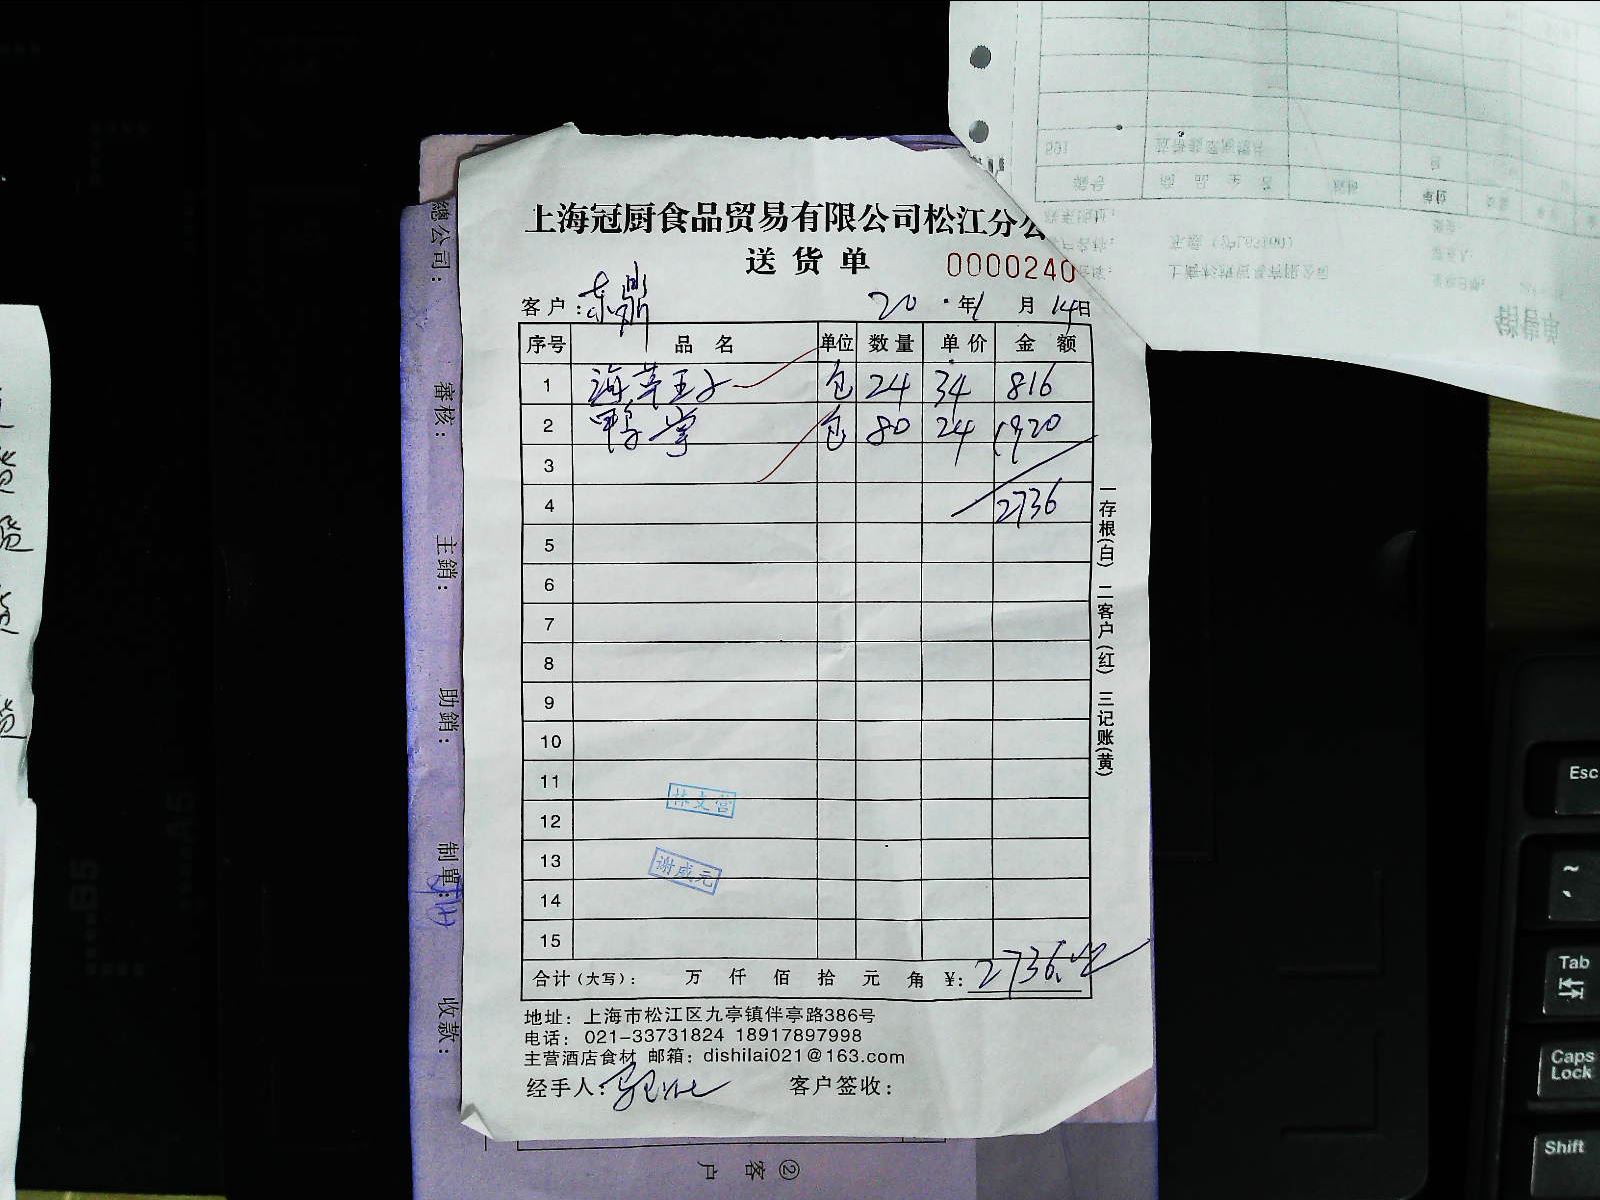 上海冠厨食品贸易有限公司松江分公
送货单
0000240
客户：东鼎 20 年1月14日
序号 品名 单位 数量 单价 金额
1 海草王子 包 24 34 816
2 鸭掌 包 80 24 1920
3
4 2736
5
6
7
8
9
10
11
12
13
14
15
林文营
谢咸元
合计(大写)： 万 仟 佰 拾 元 角 ¥: 2736.
地址：上海市松江区九亭镇伴亭路386号
电话：021-33731824 18917897998
主营酒店食材 邮箱：dishilai021@163.com
经手人： 客户签收：
一存根(白) 二客户(红) 三记账(黄)
總公司：
審核：
主銷：
助銷：
制單：
收款：
②客户
销售单
编号 商品全名 单位
Esc
~
Tab
Caps Lock
Shift
B5
A5